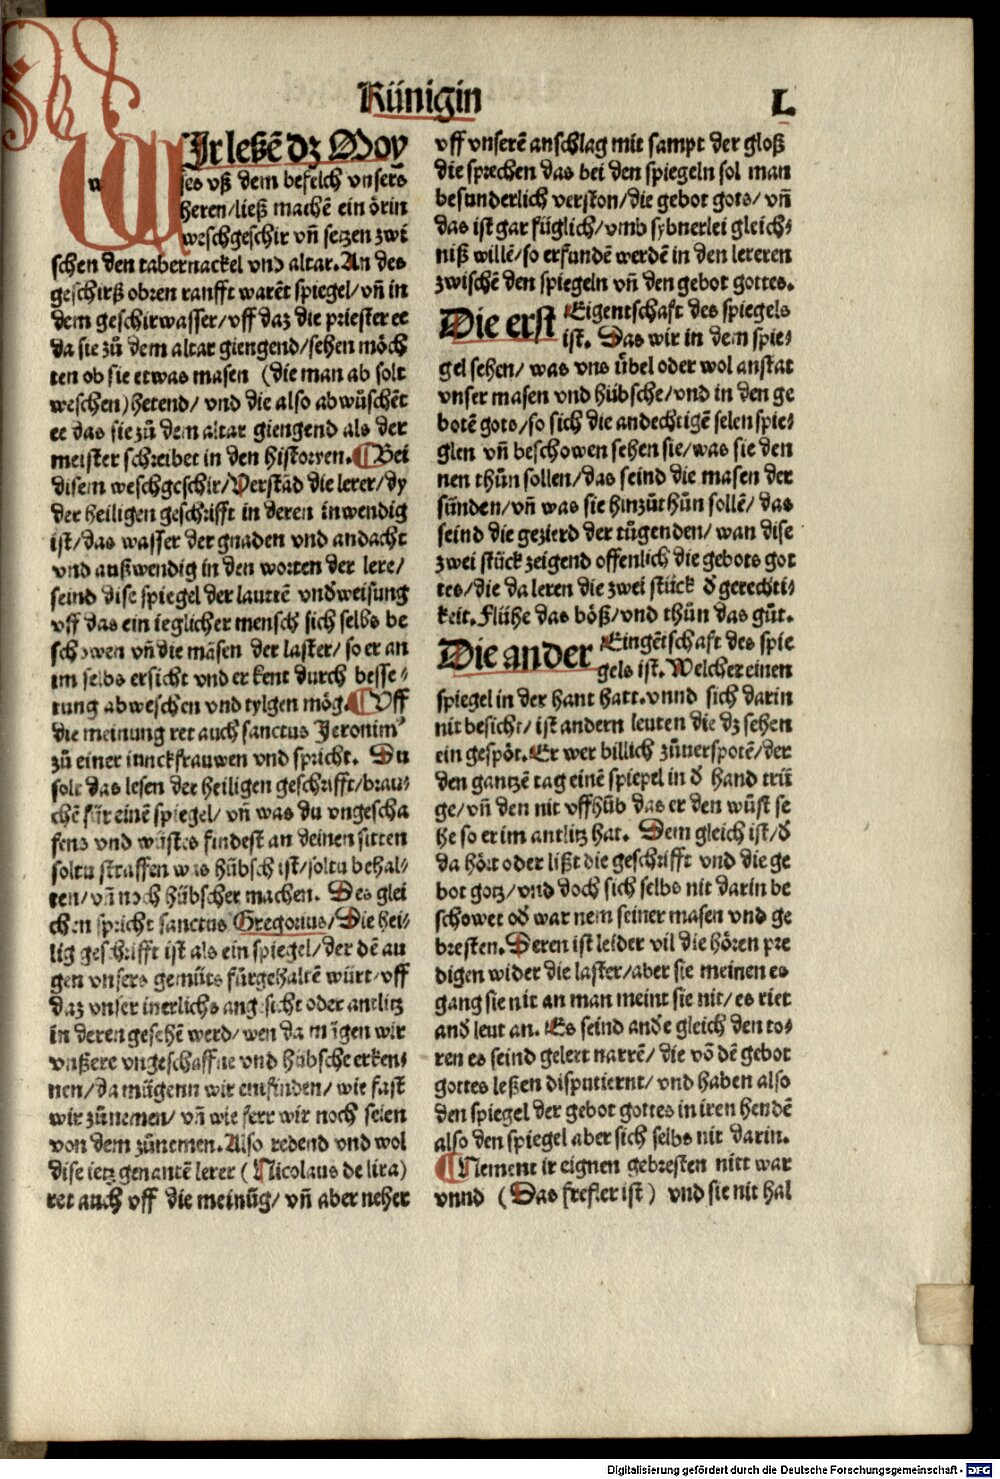 Künigin
L
WJr leßē dz Moy
ses vß dem befelch vnsers
heren/ließ machē ein örin
weschgeschir vñ setzen zwi
schen den tabernackel vnd altar. An des
geschirß obren ranfft warēt spiegel/vñ in
dem geschir wasser/vff daz die priester ee
da sie zů dem altar giengend/sehen möch
ten ob sie etwas masen (die man ab solt
weschen) hetend/ vnd die also abwüschēt
ee das sie zů dem altar giengend als der
meister schreibet in den historyen. ¶ Bei
disem weschgeschir/Verstād die lerer/dy
der heiligen geschrifft in deren inwendig
ist/das wasser der gnaden vnd andacht
vnd außwendig in den worten der lere/
seind dise spiegel der lautrē vnd̄weisung
vff das ein ieglicher mensch sich selbs be
schowen vñ die māsen der laster/ so er an
im selbs ersicht vnd er kent durch besse-
rung abweschen vnd tylgen mög. ¶ Vff
die meinung ret auch sanctus Jeronim⁹
zů einer iunckfrauwen vnd spricht. Du
solt das lesen der heiligen geschrifft/brau-
chē für einē spiegel/ vñ was du vngescha
fens vnd wüstes findest an deinen sitten
soltu straffen was hübsch ist/soltu behal-
ten/vñ noch hübscher machen. Des glei
chen spricht sanctus Gregorius/Die hei-
lig geschrifft ist als ein spiegel/der dē au
gen vnsers gemüts fürgehaltē würt/vff
daz vnser inerlichs angesicht oder antlitz
in deren gesehē werd/wen da mügen wir
vnßere vngeschaffne vnd hübsche erken-
nen/da mügenn wir emfinden/ wie fast
wir zůnemen/ vñ wie ferr wir noch seien
von dem zůnemen. Also redend vnd wol
dise ietz genantē lerer (Nicolaus de lira)
ret auch vff die meinūg/ vñ aber neher
vff vnserē anschlag mit sampt der gloß
die sprechen das bei den spiegeln sol man
besunderlich verston/die gebot gots/ vñ
das ist gar füglich/vmb sybnerlei gleich-
niß willē/so erfundē werdē in den lereren
zwischē den spiegeln vñ den gebot gottes.
Die erst Eigentschaft des spiegels
ist. Das wir in dem spie-
gel sehen/ was vns übel oder wol anstat
vnser masen vnd hübsche/vnd in den ge
botē gots/so sich die andechtigē selen spie-
glen vñ beschowen sehen sie/was sie den
nen thůn sollen/das seind die masen der
sünden/vñ was sie hinzůthůn sollē/ das
seind die gezierd der tůgenden/ wan dise
zwei stück zeigend offenlich die gebots got
tes/die da leren die zwei stück d̄ gerechti-
keit. Flühe das böß/vnd thůn das gůt.
Die ander Eingētschaft des spie
gels ist. Welcher einen
spiegel in der hant hatt. vnnd sich darin
nit besicht/ ist andern leuten die dz sehen
ein gespöt. Er wer billich zůuerspotē/der
den gantzē tag einē spiepel in d̄ hand trü
ge/vñ den nit vffhůb das er den wůst se
he so er im antlitz hat. Dem gleich ist/d̄
da hört oder lißt die geschrifft vnd die ge
bot gotz/vnd doch sich selbs nit darin be
schowet od̄ war nem seiner masen vnd ge
bresten. Deren ist leider vil die hören pre
digen wider die laster/aber sie meinen es
gang sie nit an man meint sie nit/es riet
and̄ leut an. Es seind and̄e gleich den to-
ren es seind gelert narrē/ die vō dē gebot
gottes leßen disputiernt/ vnd haben also
den spiegel der gebot gottes in iren hendē
also den spiegel aber sich selbs nit darin.
¶ Nement ir eignen gebresten nitt war
vnnd (Das frefler ist) vnd sie nit hal
Digitalisierung gefördert durch die Deutsche Forschungsgemeinschaft - DFG